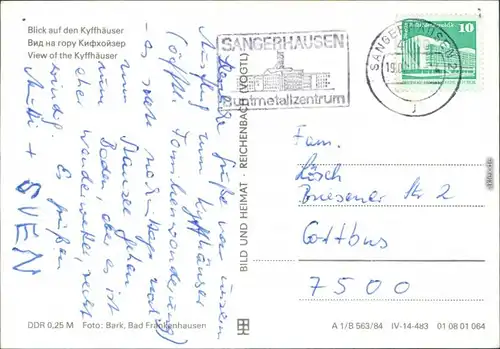 Blick auf den Kyffhäuser
Вид на гору Кифхойзер
View of the Kyffhäuser
SANGERHAUSEN
Buntmetallzentrum
SANGERHAUSEN 2
10
Herzliche Grüße von unserem
Ausflug zum Kyffhäuser
(öfftl. Familienwanderung)
- es
zum Stausee gehen
zum Baden, aber es ist
eher Wanderwetter, recht
windig. Es grüßen
+ SVEN
BILD UND HEIMAT · REICHENBACH (VOGTL)
Fam.
Lösch
Briesener Str 2
Cottbus
7500
DDR 0,25 M Foto: Bark, Bad Frankenhausen
A 1/B 563/84 IV-14-483 01 08 01 064